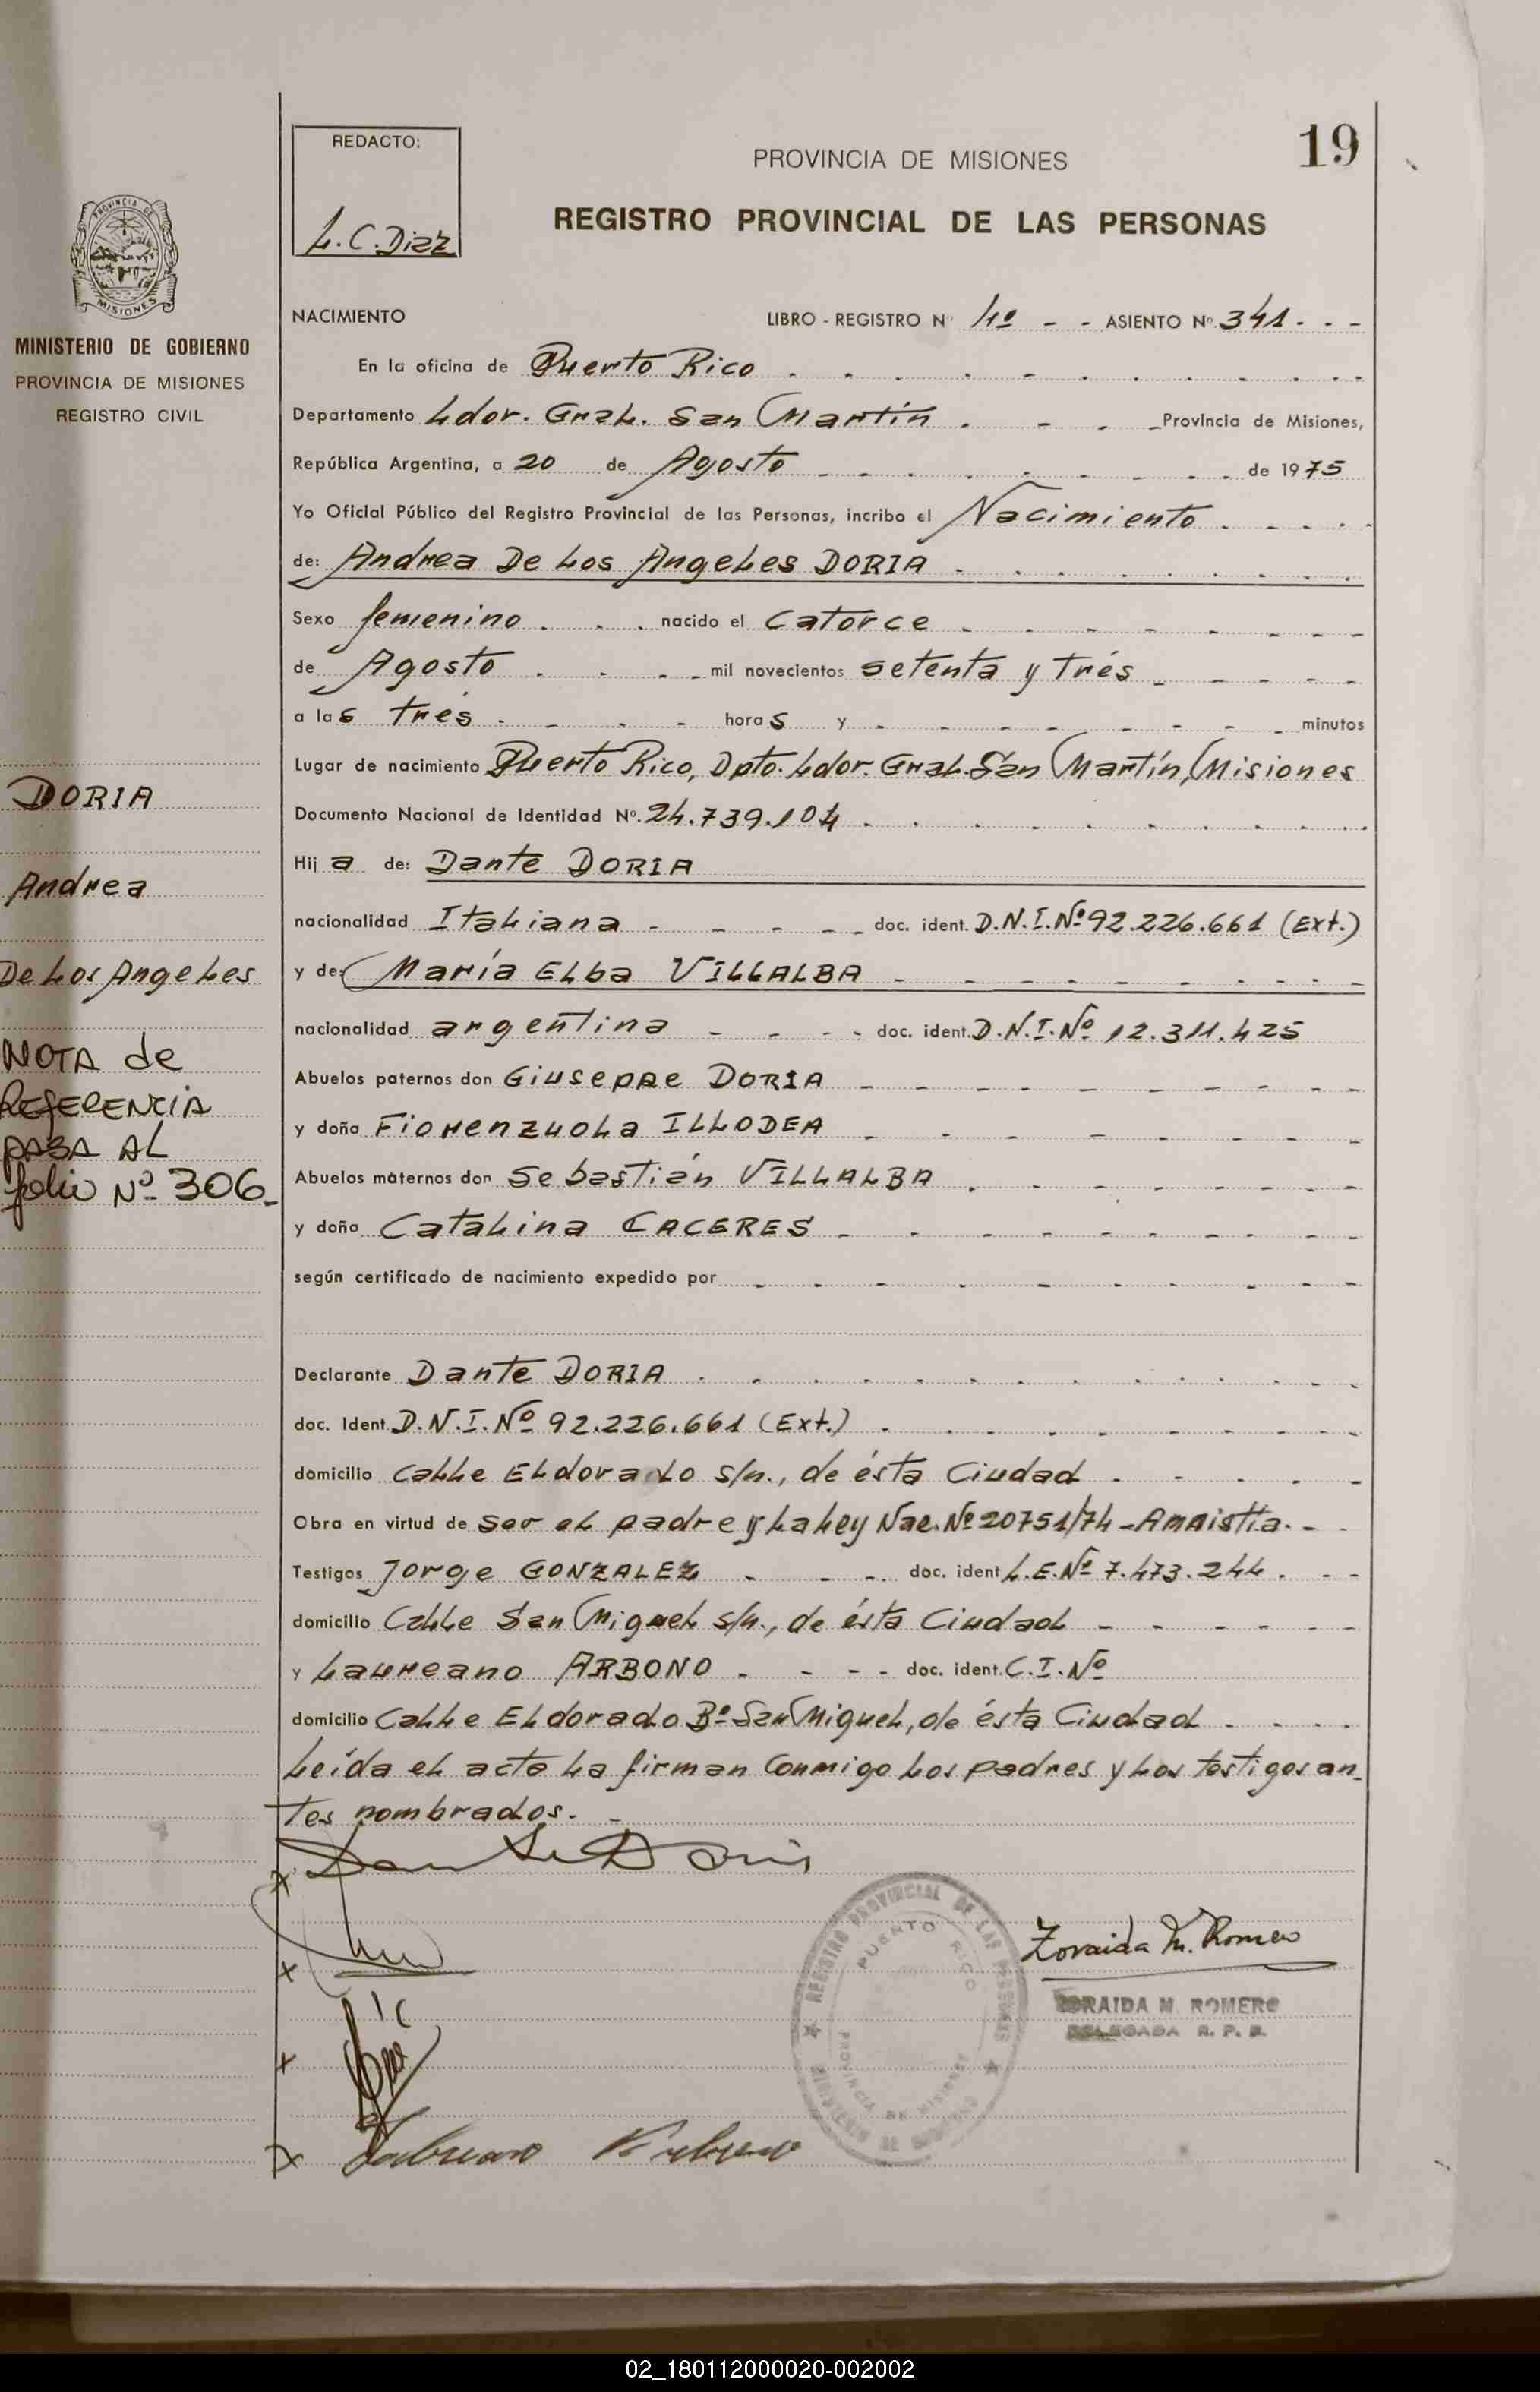 REDACTO:
L.C.Diaz
19
PROVINCIA DE MISIONES
REGISTRO PROVINCIAL DE LAS PERSONAS
PROVINCIA DE
MISIONES
MINISTERIO DE GOBIERNO
PROVINCIA DE MISIONES
REGISTRO CIVIL
NACIMIENTO LIBRO - REGISTRO Nº 4º - - ASIENTO Nº 341 - - -
En la oficina de Puerto Rico
Departamento Ldor. Gral. San Martín - - - Provincia de Misiones,
República Argentina, a 20 de Agosto de 1975
Yo Oficial Público del Registro Provincial de las Personas, incribo el Nacimiento
de: Andrea De Los Angeles DORIA
Sexo femenino nacido el Catorce
de Agosto mil novecientos setenta y trés
a las trés horas y - minutos
Lugar de nacimiento Puerto Rico, Dpto. Ldor. Gral. San Martín, Misiones
Documento Nacional de Identidad Nº. 24.739.104
Hija de: Dante DORIA
nacionalidad Italiana doc. ident. D.N.I.Nº 92.226.661 (Ext.)
y de: María Elba VILLALBA
nacionalidad argentina doc. ident. D.N.I.Nº 12.311.425
Abuelos paternos don Giuseppe DORIA
y doña Fiorenzuola ILLODEA
Abuelos maternos don Sebastián VILLALBA
y doña Catalina CACERES
según certificado de nacimiento expedido por
Declarante Dante DORIA
doc. Ident. D.N.I.Nº 92.226.661 (Ext.)
domicilio Calle Eldorado s/n., de ésta Ciudad
Obra en virtud de ser el padre y la Ley Nac. Nº 20751/74 - Amnistía. -
Testigos Jorge GONZALEZ doc. ident L.E.Nº 7.473.244
domicilio Calle San Miguel s/n., de ésta Ciudad
y Laureano ARBONO doc. ident. C.I.Nº
domicilio Calle Eldorado Bº San Miguel, de ésta Ciudad
Leída el acta la firman conmigo los padres y los testigos an-
tes nombrados. -
DORIA
Andrea
De Los Angeles
NOTA de
REFERENCIA
PASA AL
folio Nº 306
Dante Doria
REGISTRO PROVINCIAL DE LAS PERSONAS
PUERTO RICO
PROVINCIA DE MISIONES
Zoraida M. Romero
ZORAIDA M. ROMERO
DELEGADA R. P. P.
02_180112000020-002002